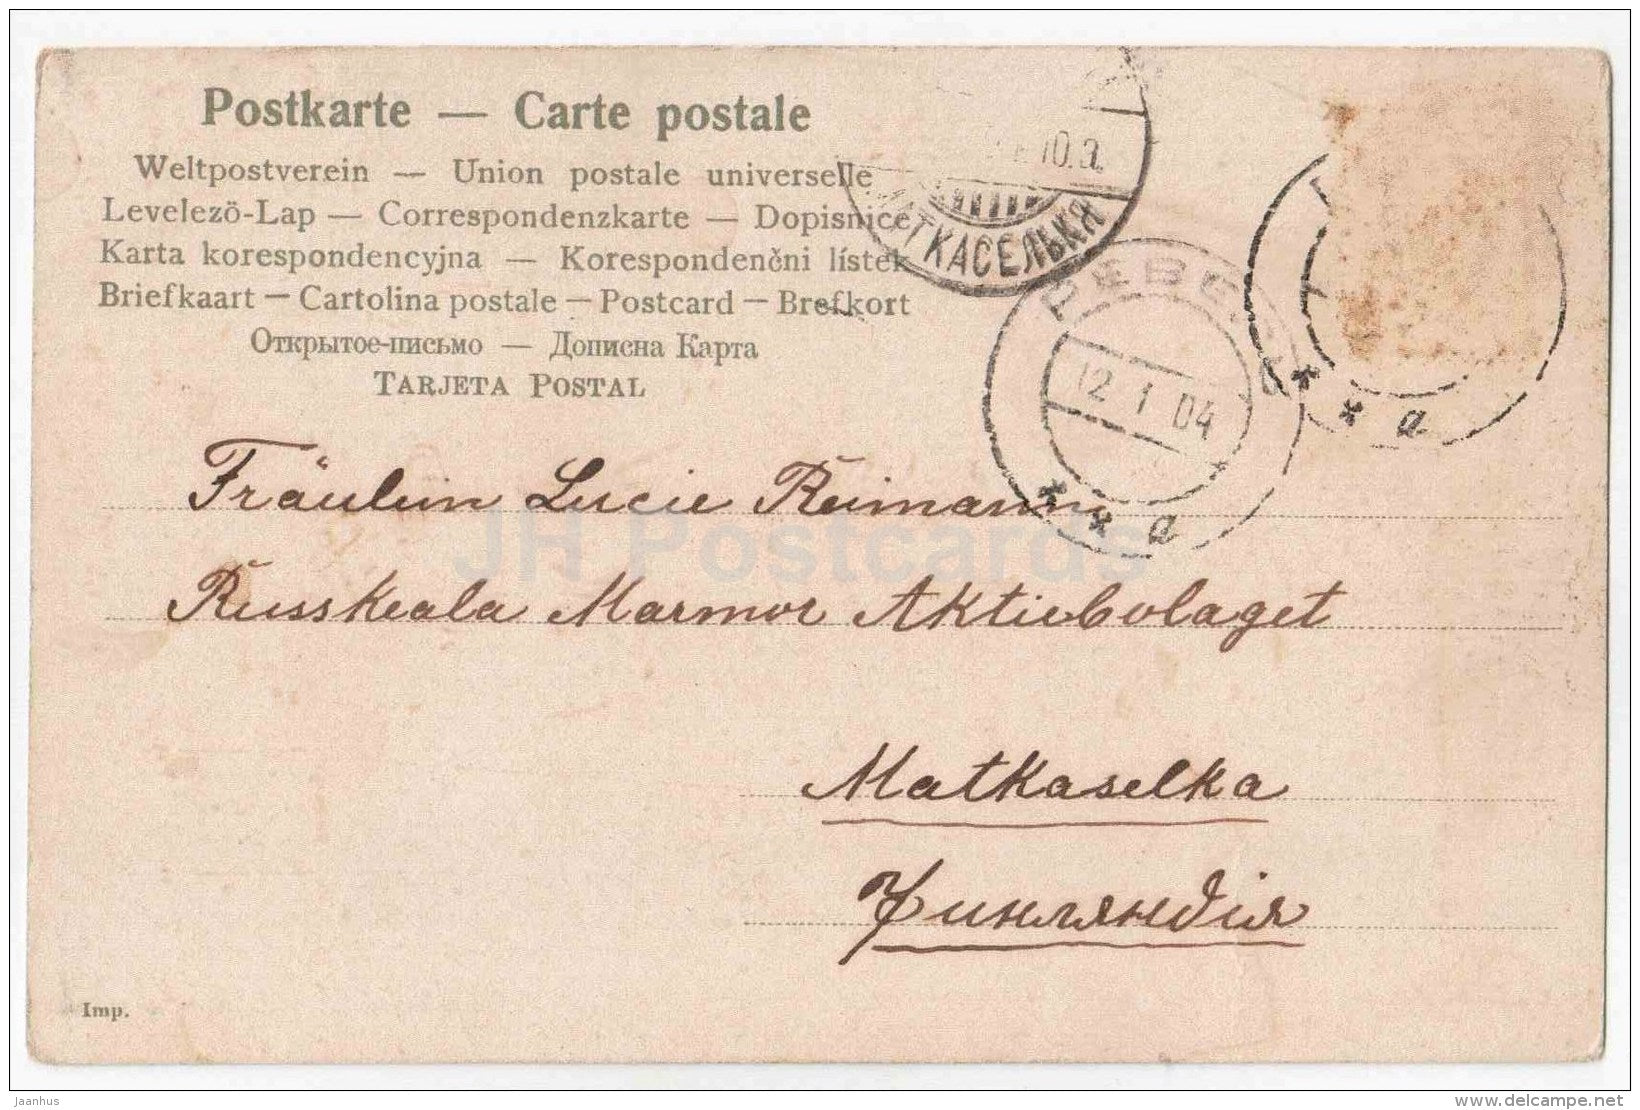 Postkarte — Carte postale
Weltpostverein — Union postale universelle
Levelezö-Lap — Correspondenzkarte — Dopisnice
Karta korespondencyjna — Korespondenčni lístek
Briefkaart — Cartolina postale — Postcard — Brefkort
Открытое-письмо — Дописна Карта
TARJETA POSTAL
МАТКАСЕЛЬКЯ
РЕВЕЛЬ
12 1 04
* * a
* * a
Fräulein Lucie Reimann,
Russkeala Marmor Aktiebolaget
Matkaselka
Финляндія
Imp.
JH Postcards
Jaanhus
www.delcampe.net